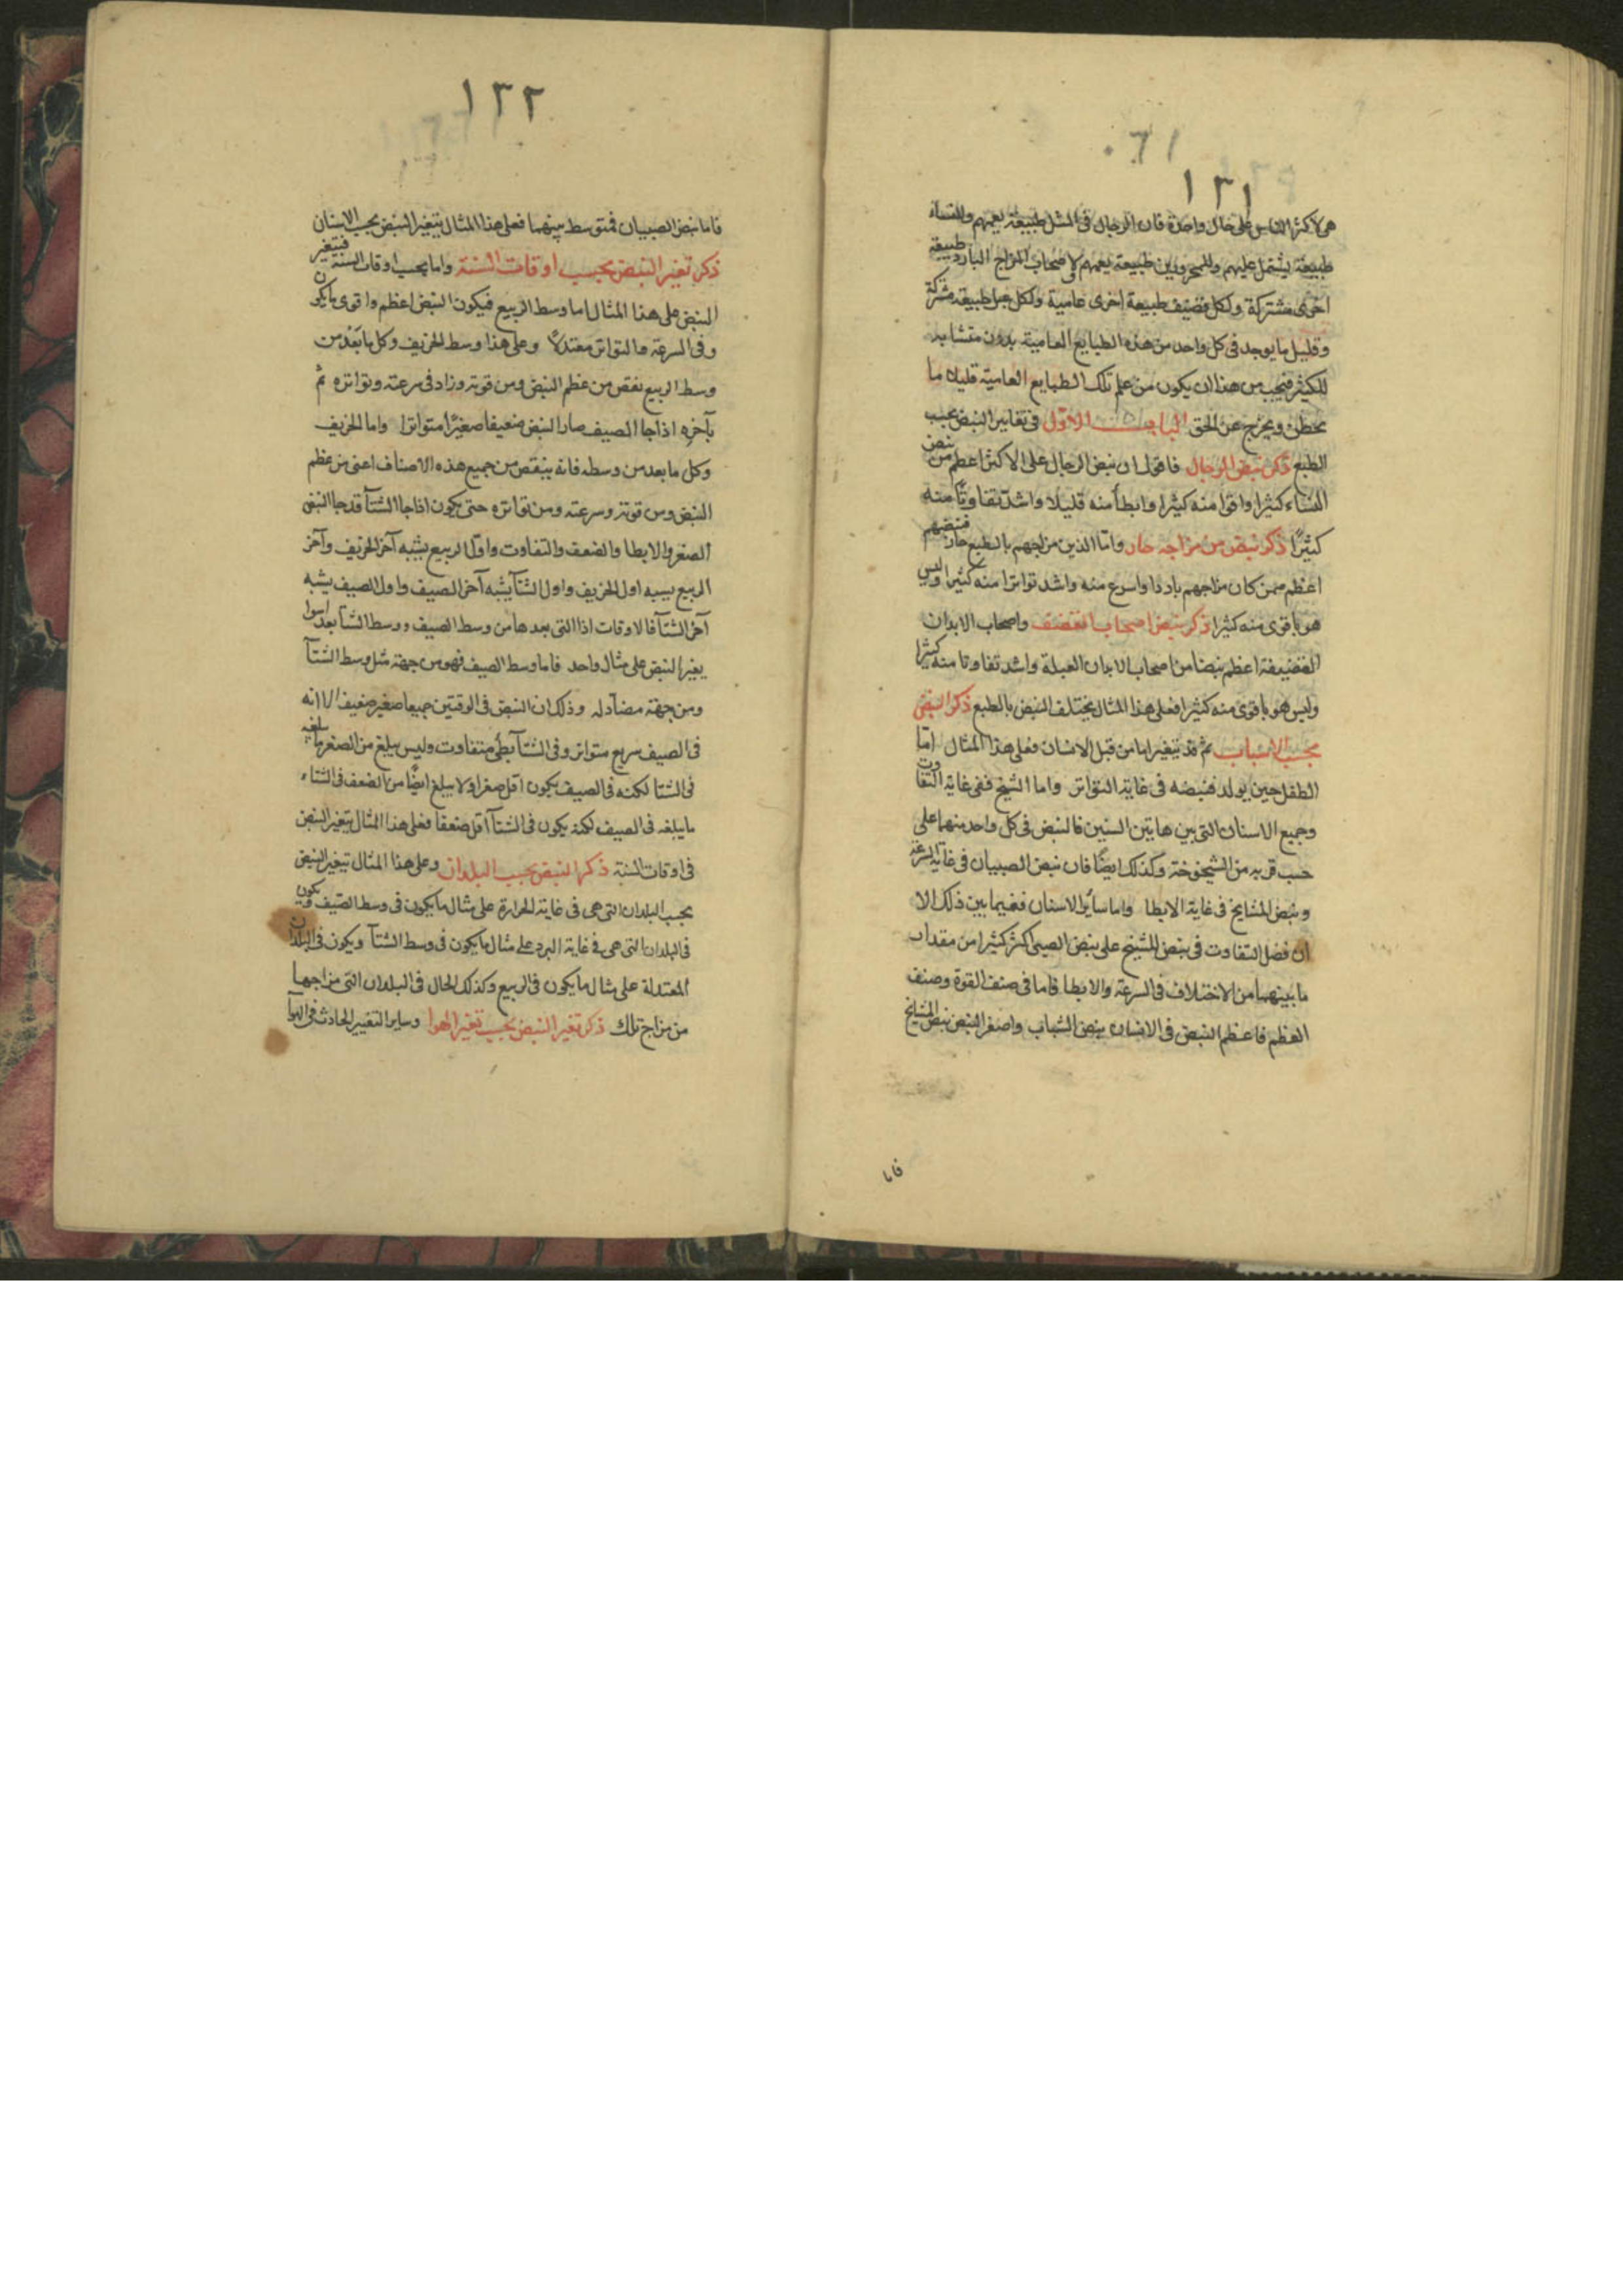 ١٣١
هى لاكثر الناس على حال واحدة فان الرجال فى المثل طبيعة يعمهم وللنساء
طبيعة يشتمل عليهم وللمحرورين طبيعة يعمهم لاصحاب المزاج البارد طبيعة
اخرى مشتركة ولكل قضيف طبيعة اخرى عامية ولكل عبل طبيعة مشتركة
وقليل ما يوجد فى كل واحد من هذه الطبايع العامية بدون متشابه
للكثير فيجب من هذا ان يكون من علم تلك الطبايع العامية قليلا ما
يخطئ ويخرج عن الحق الباب الاول فى تغايير النبض بحسب
الطبع ذكر نبض الرجال فاقول ان نبض الرجال على الاكثر اعظم من نبض
النساء كثيرا واقوا منه كثيرا وابطأ منه قليلا واشد تفاوتا منه
كثيرًا ذكر نبض من مزاجه حار واما الذين مزاجهم بالطبع حار فنبضهم
اعظم ممن كان مزاجهم باردا واسرع منه واشد تواترا منه كثيرا وليس
هو باقوى منه كثيرا ذكر نبض اصحاب القضف واصحاب الابدان
القضيفة اعظم نبضا من اصحاب الابدان العبلة واشد تفاوتا منه كثيرا
وليس هو باقوى منه كثيرا فعلى هذا المثال يختلف النبض بالطبع ذكر النبض
بحسب الاسباب ثم قد يتغير اما من قبل الاسنان فعلى هذا المثال اما
الطفل حين يولد فنبضه فى غاية التواتر واما الشيخ ففى غاية التفاوت
وجميع الاسنان التى بين هاتين السنين فالنبض فى كل واحد منهما على
حسب قربه من الشيخوخة وكذلك ايضًا فان نبض الصبيان فى غاية السرعة
ونبض المشايخ فى غاية الابطا واما سائر الاسنان ففيما بين ذلك الا
ان فضل التفاوت فى نبض المشيخ على نبض الصبى اكثر كثيرا من مقدار
ما بينهما من الاختلاف فى السرعة والابطا فاما فى صنف القوة وصنف
العظم فاعظم النبض فى الاسنان نبض الشباب واصغر النبض نبض المشايخ
فاما
١٣٢
فاما نبض الصبيان فمتوسط بينهما فعلى هذا المثال يتغير النبض بحسب الاسنان
ذكر تغير النبض بحسب اوقات السنة واما بحسب اوقات السنة فيتغير
النبض على هذا المثال اما وسط الربيع فيكون النبض اعظم واقوى ما يكون
وفى السرعة والتواتر معتدلاً وعلى هذا وسط الخريف وكل ما بَعُد من
وسط الربيع نقص من عظم النبض ومن قوته وزاد فى سرعته وتواتره ثم
بآخره اذا جا الصيف صار النبض ضعيفا صغيرًا متواترا واما الخريف
وكل ما بعد من وسطه فانه ينقص من جميع هذه الاصناف اعنى من عظم
النبض ومن قوته وسرعته ومن تواتره حتى يكون اذا جا الشتآ قد جا النبض
الصغر والابطا والضعف والتفاوت واول الربيع يشبه آخر الخريف وآخر
الربيع يشبه اول الخريف واول الشتآ يشبه آخر الصيف واول الصيف يشبه
آخر الشتآ فالاوقات اذا التى بعدها من وسط الصيف ووسط الشتآ بعد اسوا
يغير النبض على مثال واحد فاما وسط الصيف فهو من جهة مثل وسط الشتآ
ومن جهة مضاد له وذلك ان النبض فى الوقتين جميعا صغير ضعيف الا انه
فى الصيف سريع متواتر وفى الشتآ بطئ متفاوت وليس يبلغ من الصغر ما يبلغه
فى الشتا لكنه فى الصيف يكون اقل صغرا ولا يبلغ ايضًا من الضعف فى الشتاء
ما يبلغه فى الصيف لكنه يكون فى الشتآ اقل ضعفا فعلى هذا المثال يتغير النبض
فى اوقات السنة ذكر النبض بحسب البلدان وعلى هذا المثال يتغير النبض
بحسب البلدان التى هى فى غاية الحرارة على مثال ما يكون فى وسط الصيف ويكون
فى البلدان التى هى فى غاية البرد على مثال ما يكون فى وسط الشتآ ويكون فى البلدان
المعتدلة على مثال ما يكون فى الربيع وكذلك الحال فى البلدان التى مزاجها
من مزاج تلك ذكر تغير النبض بحسب تغير الهوا وساير التغيير الحادث فى الهوآ